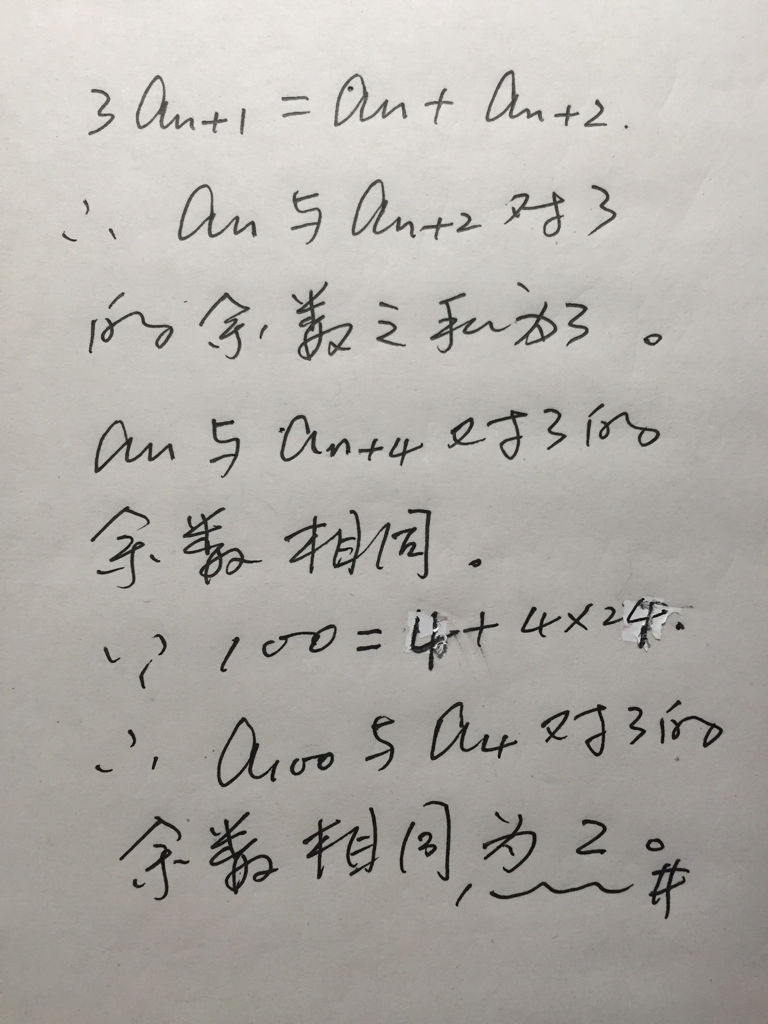 3an+1 = an + an+2.
∴ an 与 an+2 对3
的余数之和为3。
an与an+4对3的
余数相同.
∵ 100 = 4 + 4×24.
∴ a100与a4对3的
余数相同,为2。#